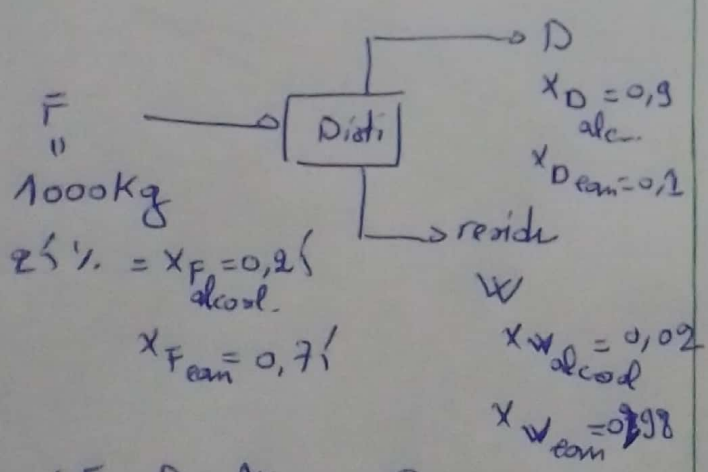 F
"
1000Kg
25 % = x F = 0,25
alcool.
x F eau = 0,75
Disti
D
x D = 0,9
alc
x D eau = 0,1
residu
W
x W alcool = 0,02
x W eau = 0,98